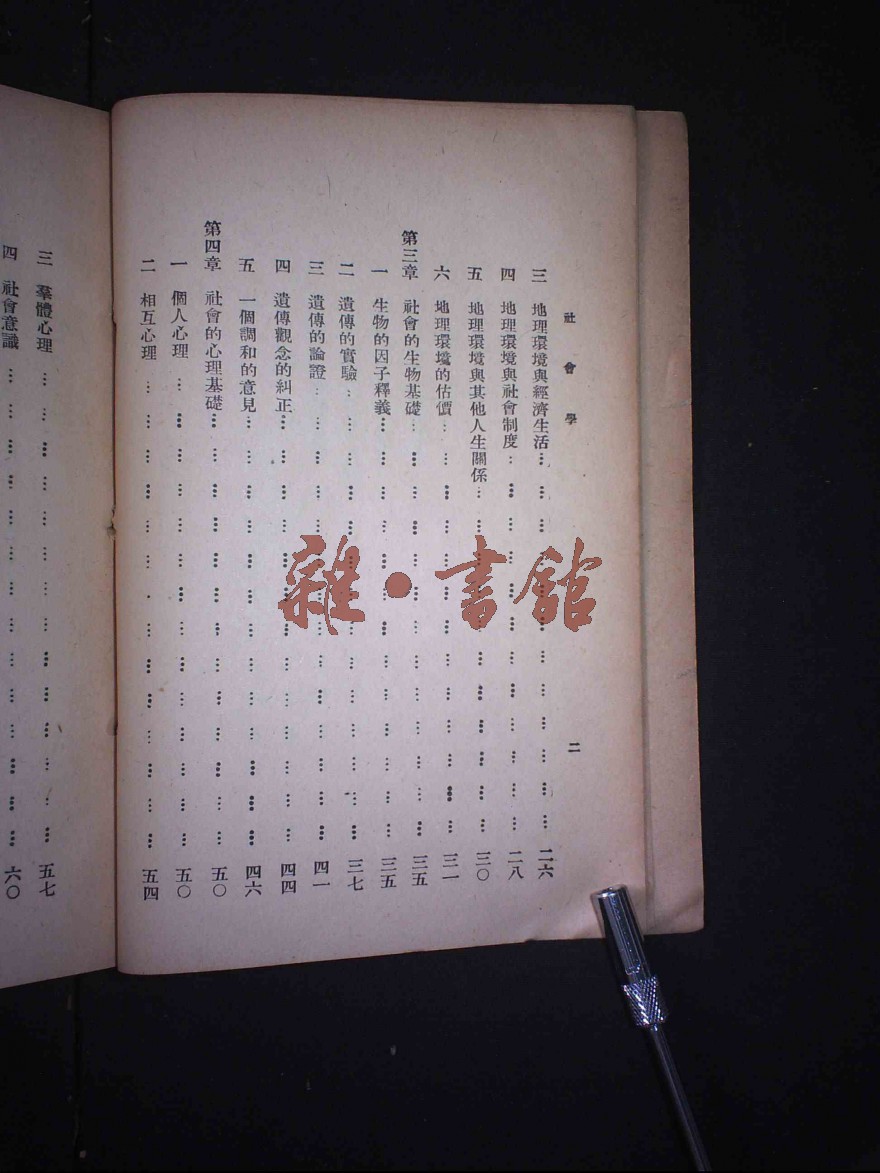 社會學
二
三 地理環境與經濟生活 二六
四 地理環境與社會制度 二八
五 地理環境與其他人生關係 三〇
六 地理環境的估價 三一
第三章 社會的生物基礎 三五
一 生物的因子釋義 三五
二 遺傳的實驗 三七
三 遺傳的論證 四一
四 遺傳觀念的糾正 四四
五 一個調和的意見 四六
第四章 社會的心理基礎 五〇
一 個人心理 五〇
二 相互心理 五四
三 羣體心理 五七
四 社會意識 六〇
雜·書館